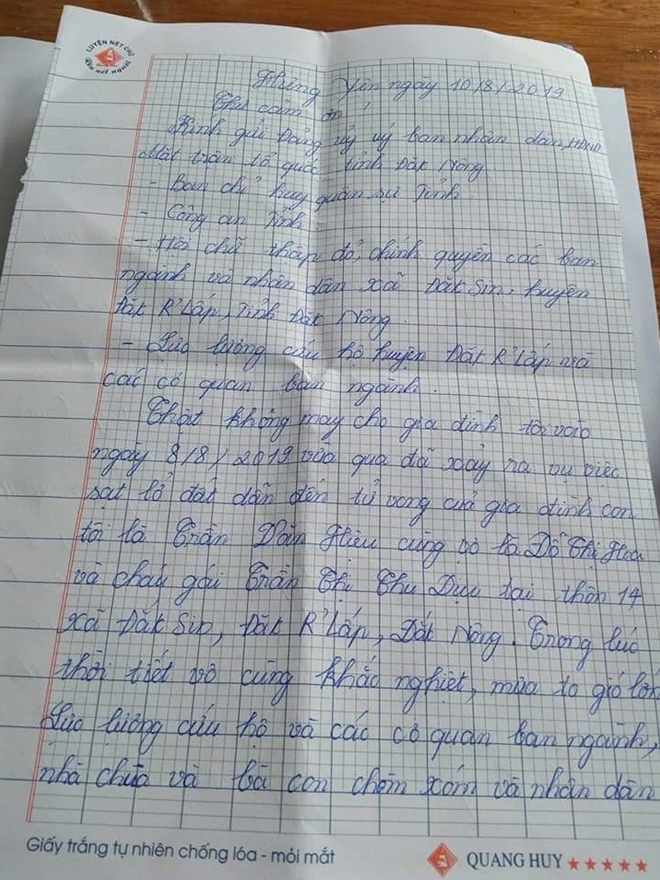 LUYỆN NÉT CHỮ
Rèn nết người
Hưng Yên ngày 10/8/2019
Thư cảm ơn
Kính gửi Đảng ủy ủy ban nhân dân, HĐND
Mặt trận tổ quốc tỉnh Đăk Nông
- Ban chỉ huy quân sự Tỉnh.
- Công an Tỉnh
- Hội chữ thập đỏ, chính quyền các ban
ngành và nhân dân xã Đăk Sin, huyện
Đăk R'Lấp, Tỉnh Đăk Nông.
- Lực lượng cứu hộ huyện Đăk R'Lấp và
các cơ quan ban ngành.
Thật không may cho gia đình tôi vào
ngày 8/8/2019 vừa qua đã xảy ra vụ việc
sạt lở đất dẫn đến tử vong của gia đình con
tôi là Trần Văn Hiếu cùng vợ là Đỗ Thị Hoa
và cháu gái Trần Thị Thu Dịu tại thôn 14
xã Đăk Sin, Đăk R'Lấp, Đắk Nông. Trong lúc
thời tiết vô cùng khắc nghiệt, mưa to gió lớn
Lực lượng cứu hộ và các cơ quan ban ngành,
nhà chùa và bà con chòm xóm và nhân dân
Giấy trắng tự nhiên chống lóa - mỏi mắt
QUANG HUY